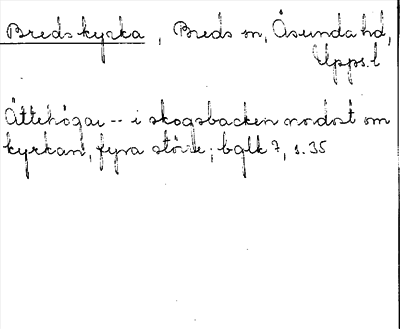 Breds kyrka, Breds sn, Åsunda hd,
Upps. l
Ättehögar -- i skogsbacken nordost om
kyrkan, fyra större; bglk 7, s. 35